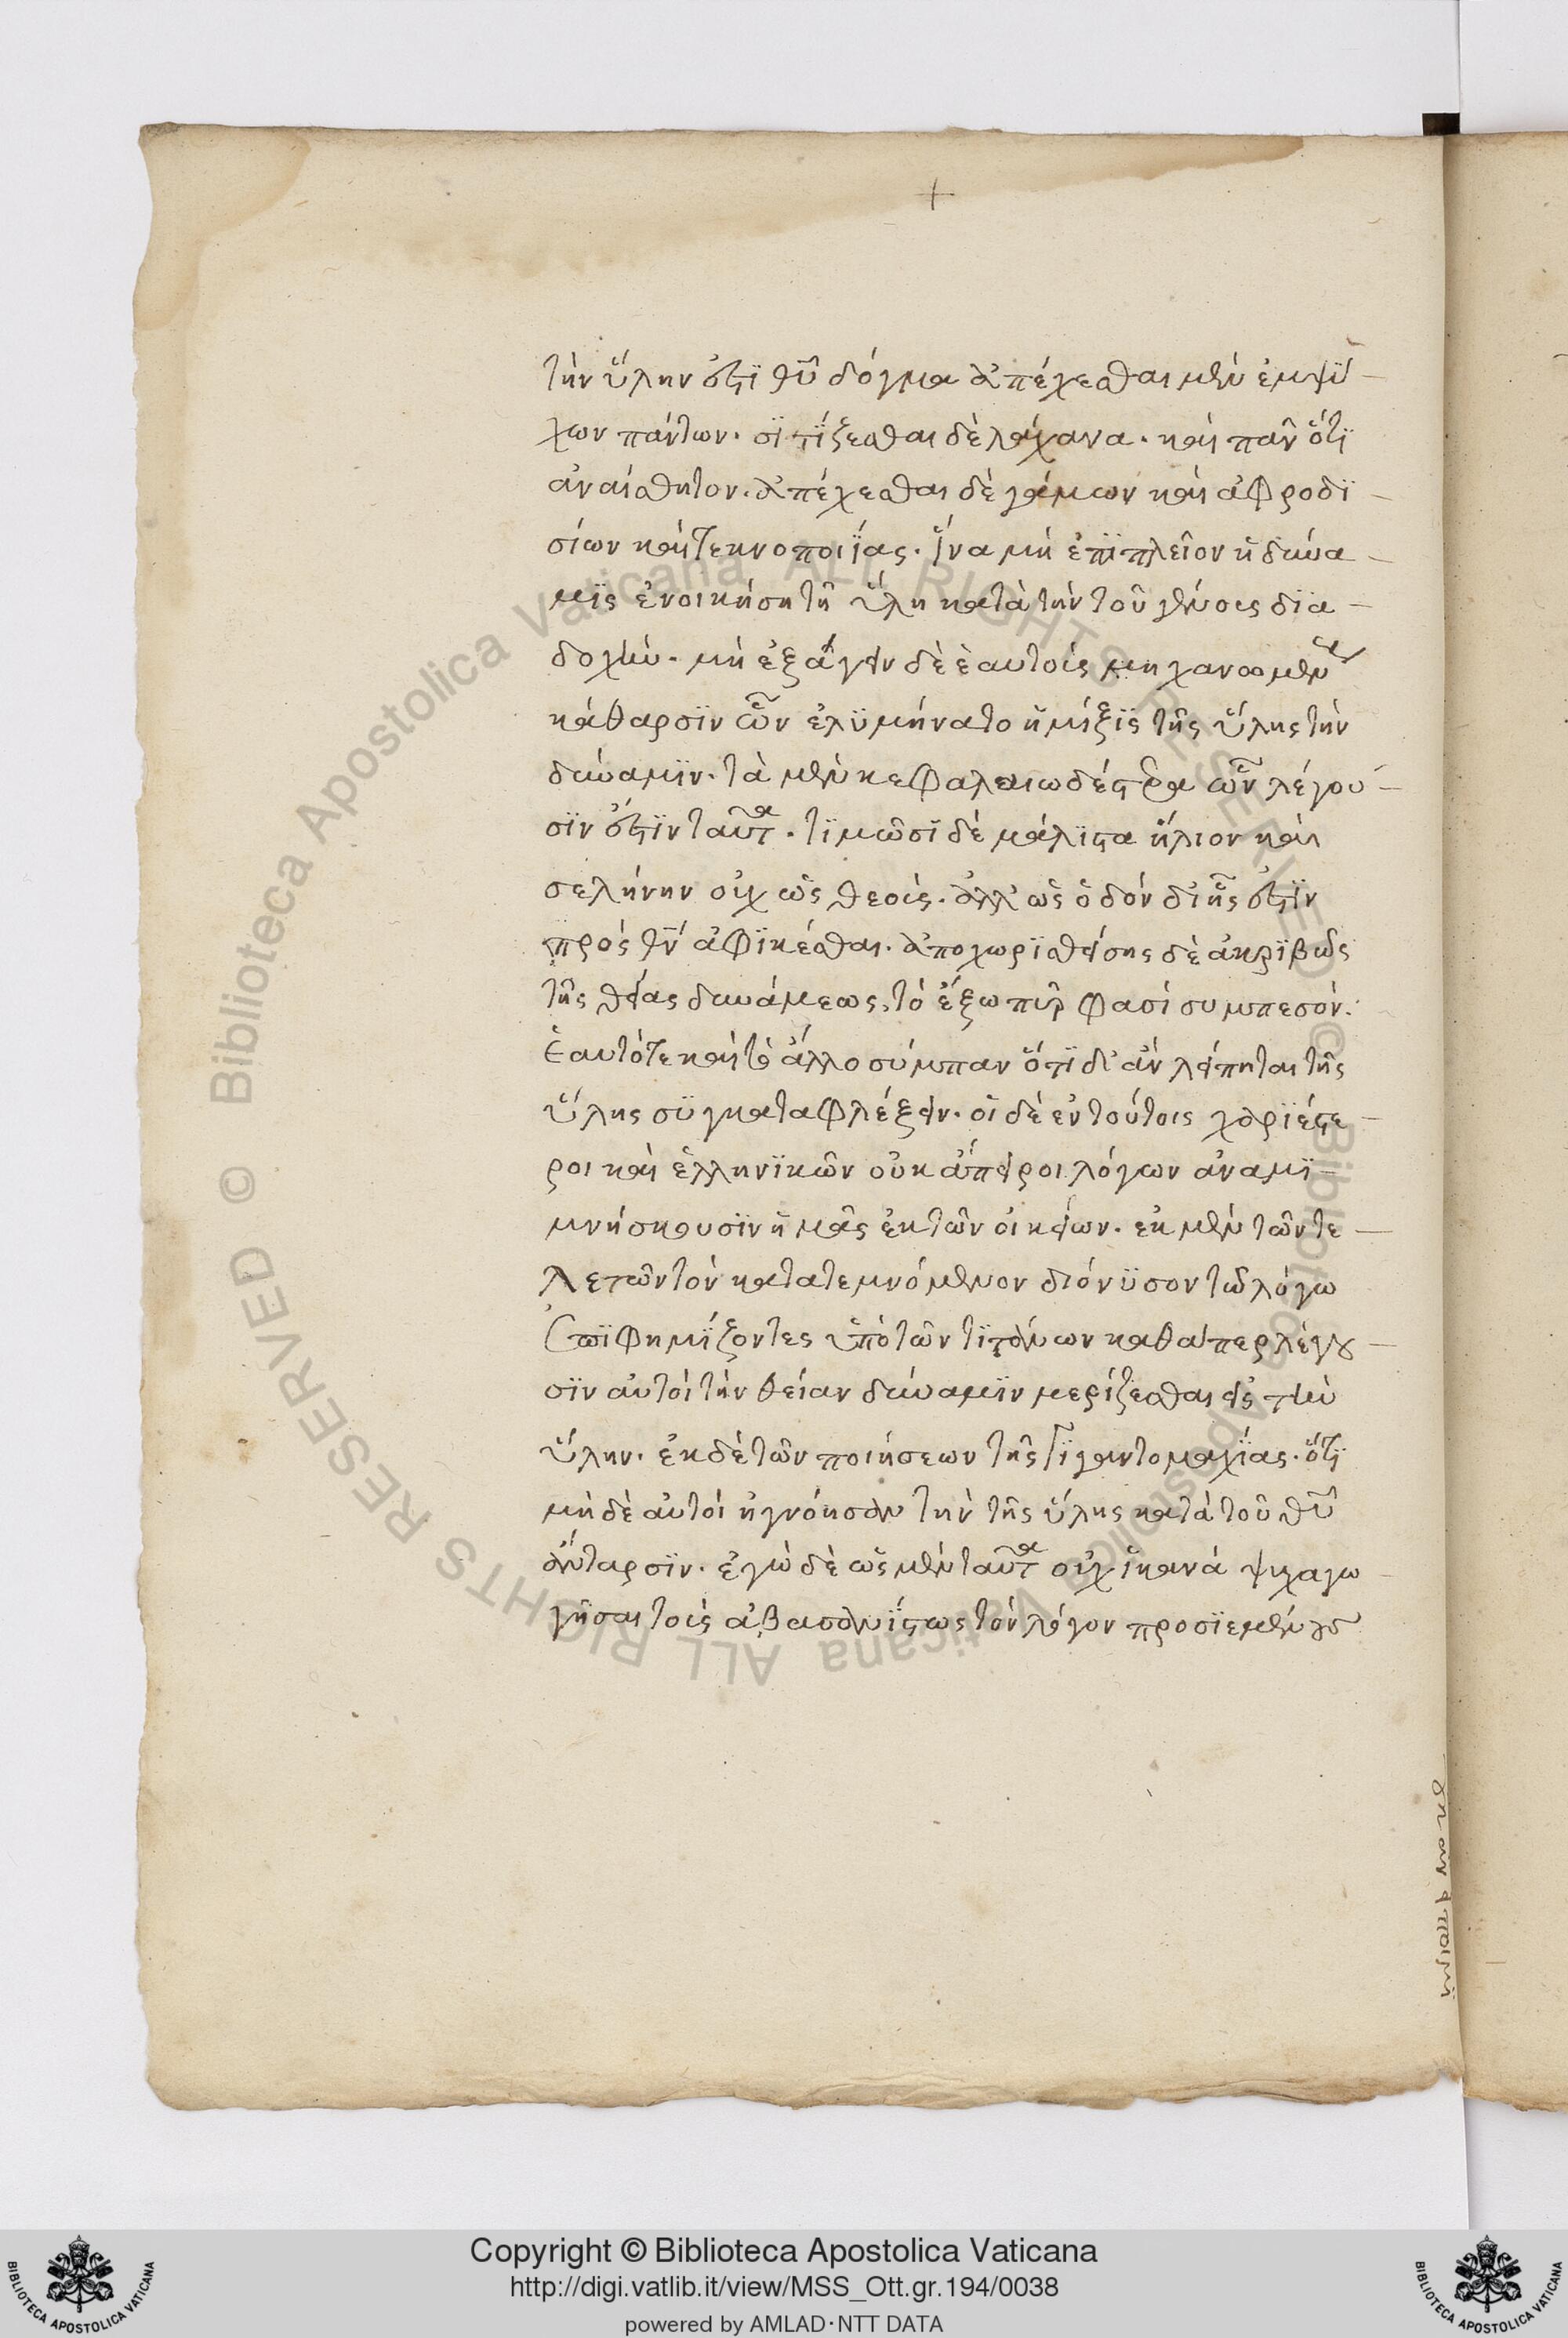 +
τὴν ὕλην ἐστϊ θῡ δόγμα ἀπέχεσθαι μὲν ἐμψΰ-
χων πάντων. σϊτΐζεσθαι δὲ λάχανα. καὶ πᾶν ὅτϊ
ἀναίσθητον. ἀπέχεσθαι δὲ γάμων καὶ ἀφροδϊ-
σίων καὶ τεκνοποιΐας. ἵνα μὴ ἐπϊπλεῖον ἡ δύνα-
μϊς ἐνοικήση τῆ ὕλη κατὰ τὴν τοῦ γένους δϊα-
δοχὴν. μὴ ἐξάγειν δὲ ἑαυτοὺς μηχανωμένους
κάθαρσϊν ὧν ἐλϋμήνατο ἡ μίξϊς τῆς ὕλης τὴν
δύναμϊν. τὰ μὲν κεφαλαιωδέστερα ὧν λέγου-
σϊν ἐστϊν ταῦτα. τϊμῶσϊ δὲ μάλϊστα ἥλιον καὶ
σελήνην οὐχ ὡς θεούς. ἀλλ' ὡς ὁδὸν δι' ἧς ἐστϊν
πρὸς θν̄ ἀφϊκέσθαι. ἀποχωρϊσθείσης δὲ ἀκρϊβῶς
τῆς θείας δυνάμεως, τὸ ἔξω πῦρ φασὶ συμπεσόν.
ἑαυτό τε καὶ τὸ ἄλλο σύμπαν ὅτϊ δ' ἂν λείπηται τῆς
ὕλης σϋγκαταφλέξειν. οἱ δὲ ἐν τούτοις χαρϊέστε-
ροι καὶ ἑλληνϊκῶν οὐκ ἄπειροι λόγων ἀναμϊ-
μνήσκουσϊν ἡμᾶς ἐκ τῶν οἰκείων. ἐκ μὲν τῶν τε-
λετῶν τὸν κατατεμνόμενον διόνϋσον τῶ λόγω
ἐπϊφημΐζοντες ὑπὸ τῶν τϊτάνων καθάπερ λέγου-
σϊν αὐτοὶ τὴν θείαν δύναμϊν μερίζεσθαι εἰς τὴν
ὕλην. ἐκ δὲ τῶν ποιήσεων τῆς Γϊγαντομαχΐας. ὅτϊ
μὴ δὲ αὐτοὶ ἠγνόησαν τὴν τῆς ὕλης κατὰ τοῦ θῡ
ἄνταρσϊν. ἐγὼ δὲ ὡς μὲν ταῦτα οὐχ ἱκανὰ ψυχαγω-
γῆσαι τοὺς ἀβασανΐστως τὸν λόγον προσϊεμένους